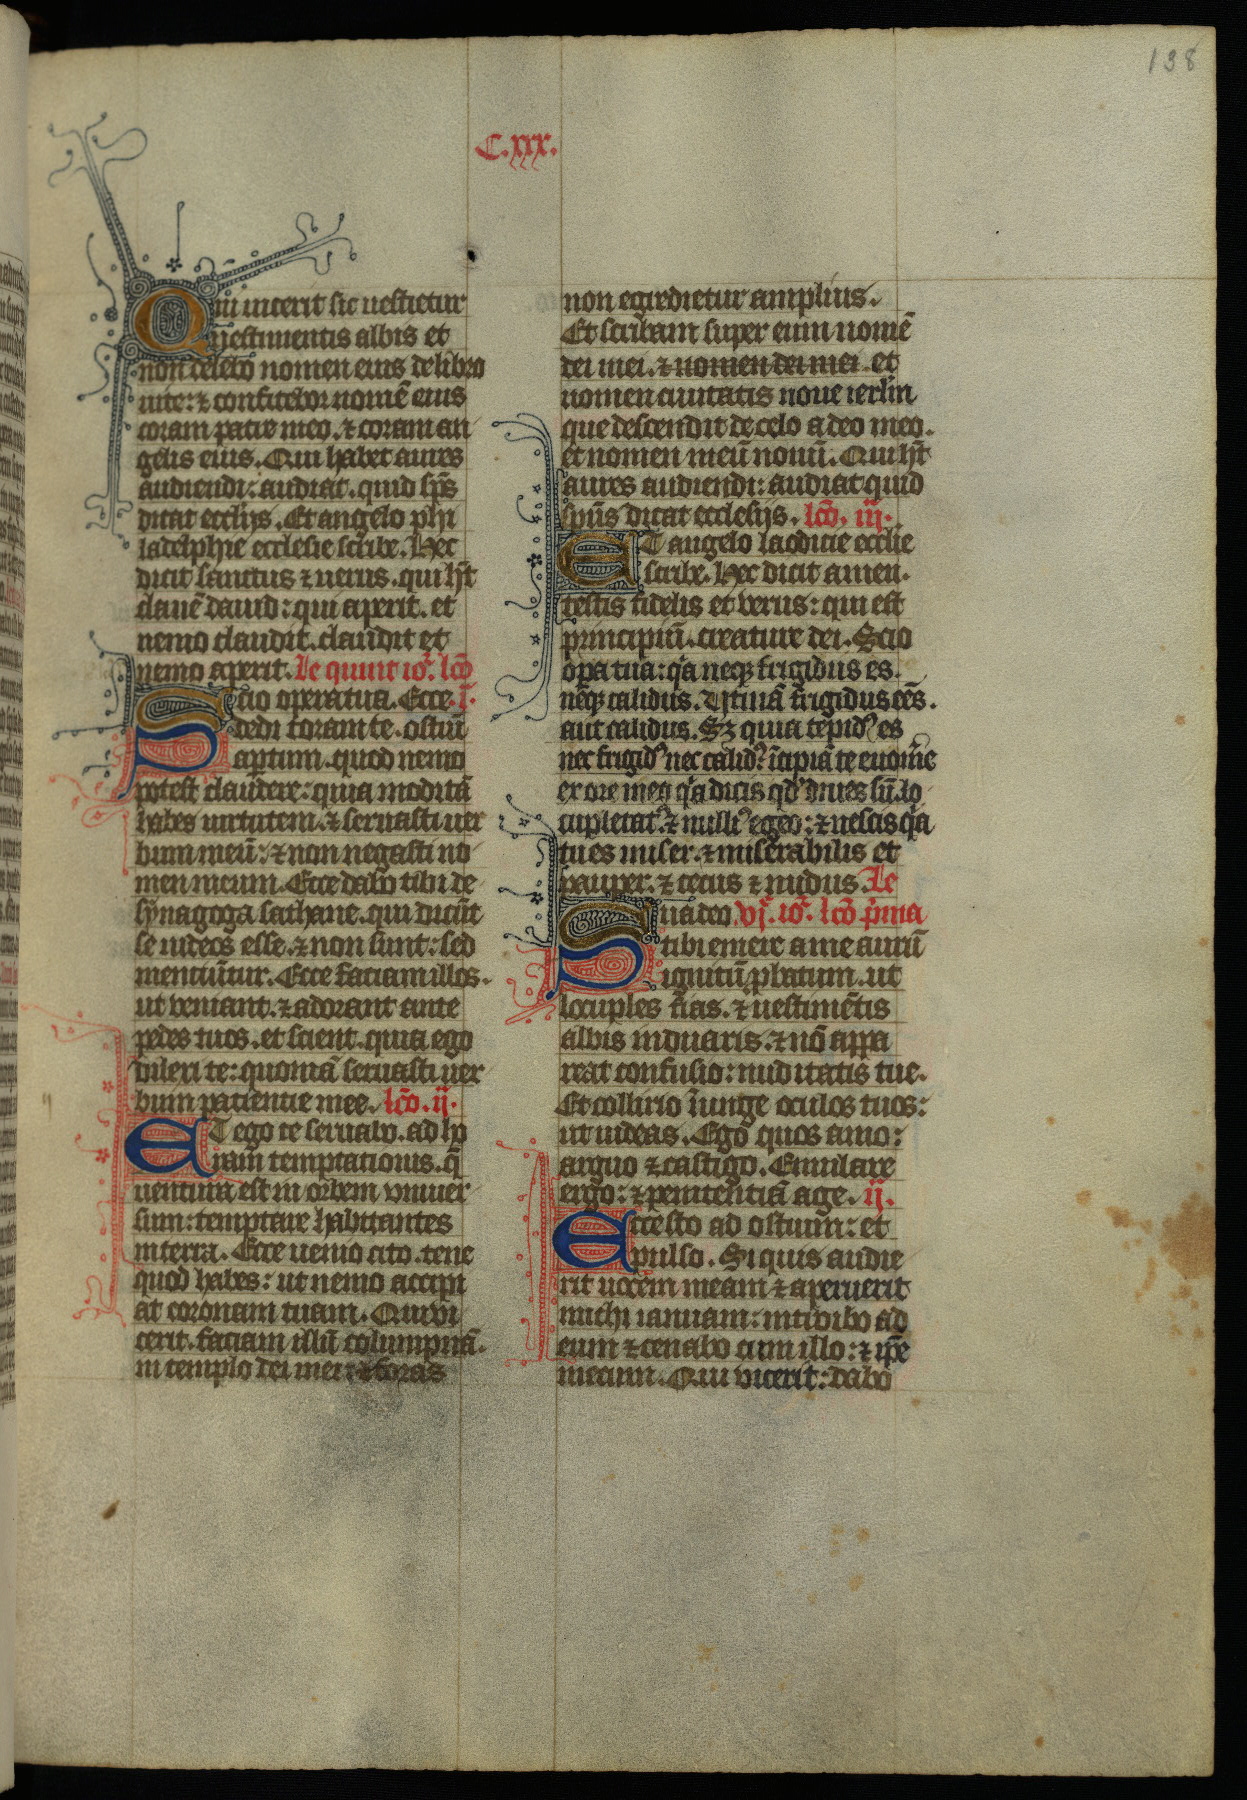 138
C.xxx.
Qui uicerit sic uestietur
uestimentis albis et
non delebo nomen eius de libro
uite: ⁊ confitebor nomē eius
coram patre meo. ⁊ coram an
gelis eius. Qui habet aures
audiendi: audiat. quid sp̄s
dicat ecclijs. Et angelo phi
ladelphie ecclesie scribe. Hec
dicit sanctus ⁊ uerus. qui hꝫt
clauē dauid: qui aperit. et
nemo claudit. claudit et
nemo aperit. Fe quint io. lc̄o
Scio opera tua. Ecce. i.
dedi coram te. ostiū
aptum. quod nemo
potest claudere: quia modicā
habes uirtutem. ⁊ seruasti uer
bum meū: ⁊ non negasti no
men meum. Ecce dabo tibi de
synagoga sathane. qui dicūt
se iudeos esse. ⁊ non sunt: sed
mentiūtur. Ecce faciam illos.
ut veniant. ⁊ adorant ante
pedes tuos. et scient. quia ego
dilexi te: quoniā seruasti uer
bum patientie mee. lc̄o. ij.
ET ego te seruabo. ad ho
ram temptationis. q̄
uentura est in orbem vniuer
sum: temptare habitantes
in terra. Ecce uenio cito. tene
quod habes: ut nemo accipi
at coronam tuam. Qui vi
cerit. faciam illū columpnā.
in templo dei mei: ⁊ foras
non egredietur amplius.
Et scribam super eum nomē
dei mei. ⁊ nomen dei mei. et
nomen ciuitatis noue ierl̄m
que descendit de celo a deo meo.
et nomen meū nouū. Qui hꝫt
aures audiendi: audiat quid
spūs dicat ecclesijs. lc̄o. iij.
ET angelo laodicie ecclie
scribe. Hec dicit amen.
testis fidelis et verus: qui est
principiū. creature dei. Scio
opa tua: q̄a neqꝫ frigidus es.
neqꝫ calidus. Vtinā frigidus eēs.
aut calidus. Sꝫ quia tepidꝰ es
nec frigidꝰ nec calidꝰ: īcipiā te euomē
ex ore meo q̄a dicis qd̄ diues sū. lo
cupletatꝰ ⁊ nulliꝰ egeo: ⁊ nescis q̄a
tu es miser. ⁊ miserabilis et
pauper. ⁊ cecus ⁊ nudus. Fe
Suadeo vj. io. lc̄o p̄ma
tibi emere a me aurū
ignitū ꝓbatum. ut
locuples fias. ⁊ uestimētis
albis induaris. ⁊ nō appa
reat confusio: nuditatis tue.
Et collirio īunge oculos tuos:
ut uideas. Ego quos amo:
arguo ⁊ castigo. Emulare
ergo: ⁊ penitentiā age. ij.
Ecce sto ad ostium: et
pulso. Si quis audie
rit uocem meam ⁊ aperuerit
michi ianuam: intrabo ad
eum ⁊ cenabo cum illo: ⁊ ip̄e
mecum. Qui vicerit: dabo